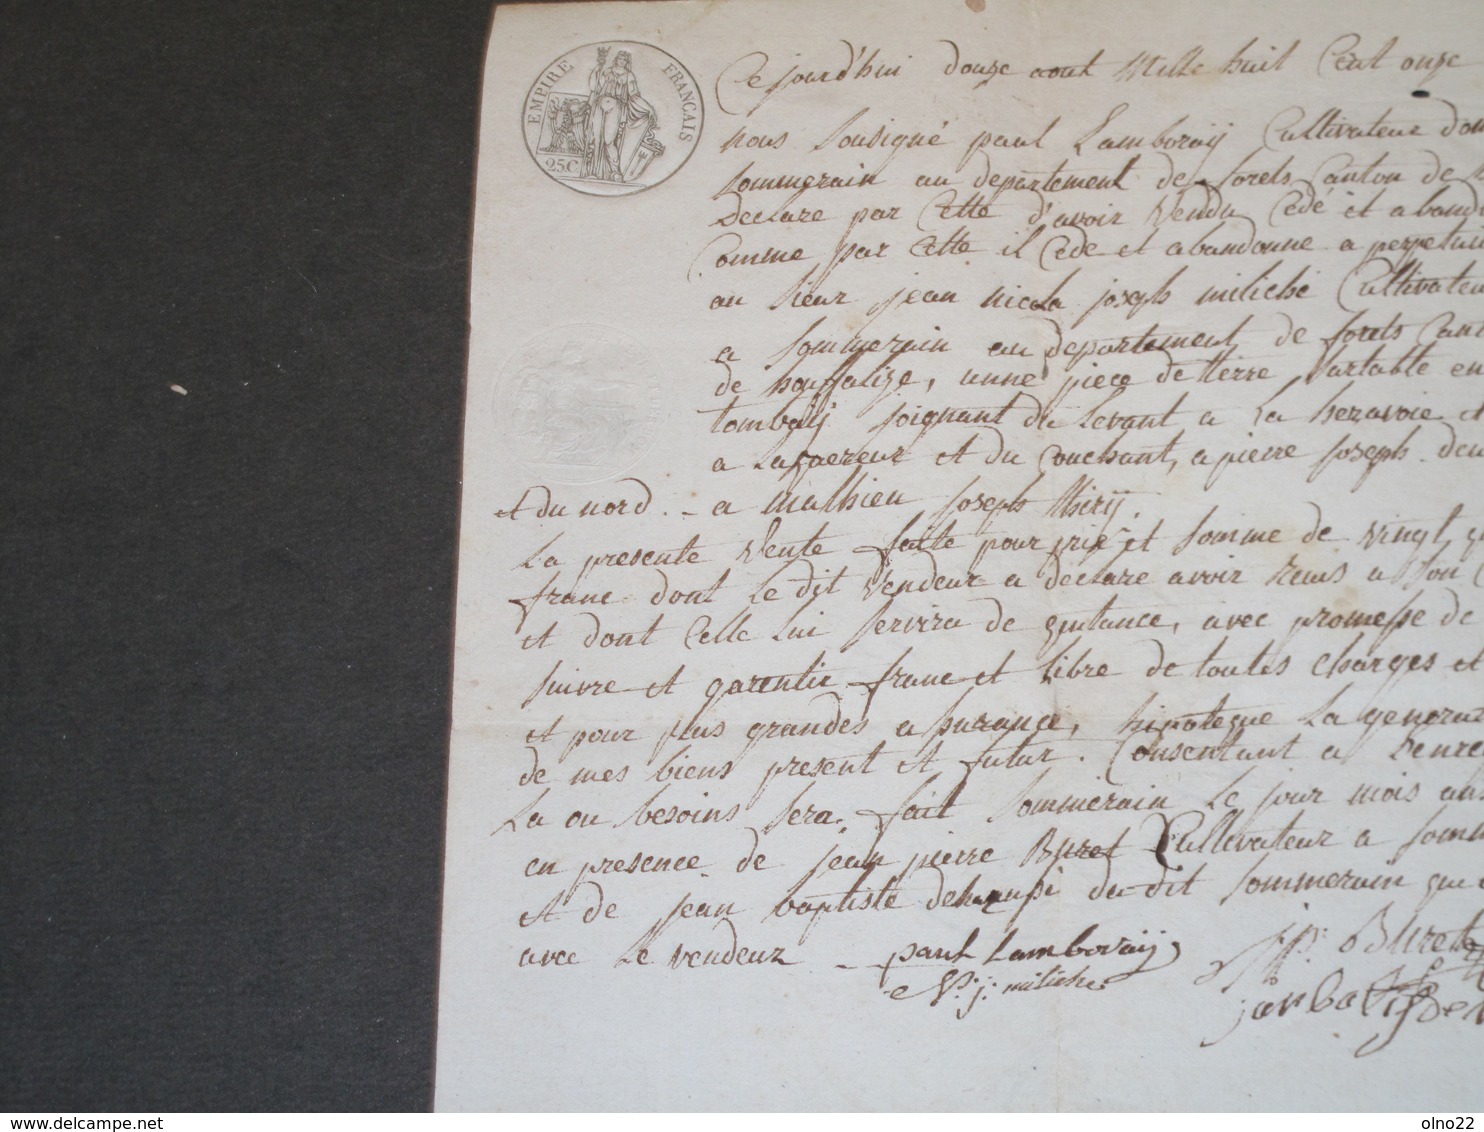 EMPIRE FRANCAIS
25.C
Ce jourd'hui douze aout Mille huit Cent onze
nous Sousigné paul Lamboraÿ Cultivateur dom
Sommerain au departement de forets Canton de
Declare par Cette d'avoir Vendu Cedé et aband
Comme par Cette il Cede et abandonne a perpetui
au Sieur jean nicola joseph miliché Cultivateu
a Sommerain au departement de forets Can
de houffalize, unne piece de terre Sartable en
tombaÿ joignant du Levant a La hezavoie et
a Laquereur et du Couchant, a pierre joseph deu
et du nord - a Mathieu joseph thirÿ.
La presente Vente faite pour prix et Somme de vingt
franc dont Le dit Vendeur a declare avoir Reçus a Son
et dont Celle Lui Servira de quitance, avec promesse de
Suivre et garentir franc et Libre de toutes Charges et
et pour plus grandes asurange, hipoteque La genera
de mes biens present et futur. Consentant a
La ou besoins Sera. fait Sommerain Le jour mois an
en presence de jean pierre Buret Cultivateur a Somm
et de jean baptiste du dit Sommerain qui
avec Le vendeur - paul Lamboraÿ
N. j. miliche
j p Buret
olno22